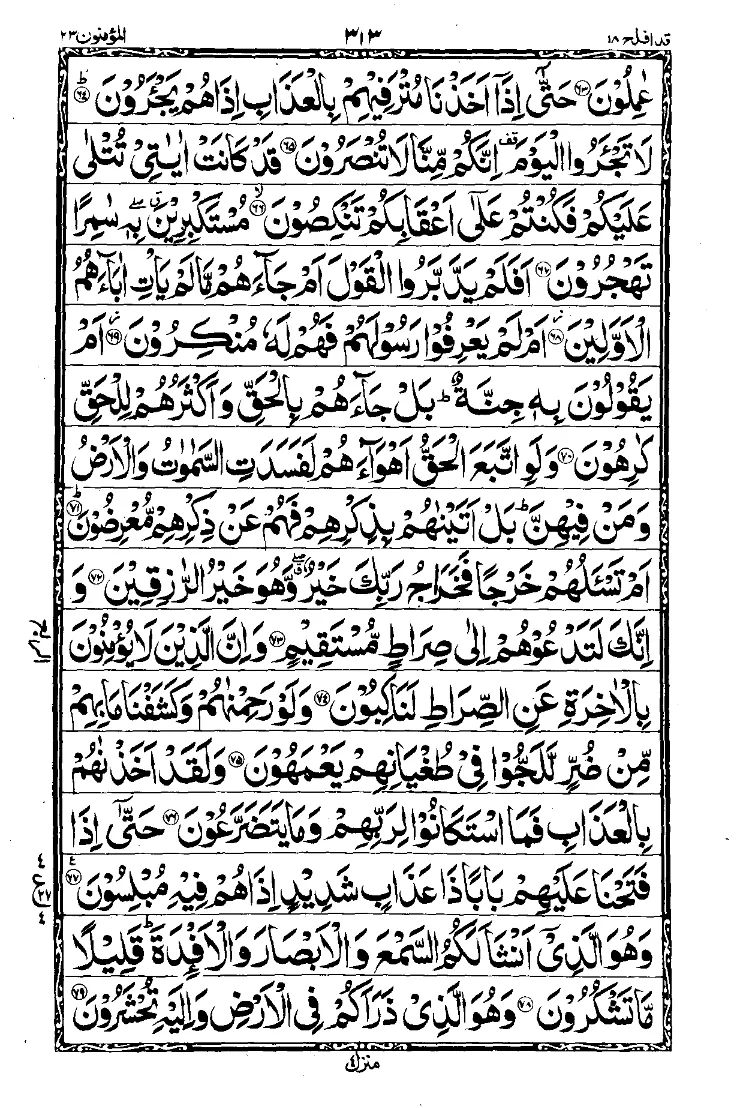 قد افلح ١٨ ٣١٣ المؤمنون ٢٣
عٰمِلُوْنَ ﴿٦٣﴾ حَتّٰۤى اِذَاۤ اَخَذْنَا مُتْرَفِيْهِمْ بِالْعَذَابِ اِذَا هُمْ يَجْـَٔرُوْنَ ﴿٦٤﴾ؕ
لَا تَجْـَٔرُوا الْيَوْمَ قف اِنَّكُمْ مِّنَّا لَا تُنْصَرُوْنَ ﴿٦٥﴾ قَدْ كَانَتْ اٰيٰتِيْ تُتْلٰى
عَلَيْكُمْ فَكُنْتُمْ عَلٰۤى اَعْقَابِكُمْ تَنْكِصُوْنَ ﴿٦٦﴾ۙ مُسْتَكْبِرِيْنَ بِهٖ سٰمِرًا
تَهْجُرُوْنَ ﴿٦٧﴾ اَفَلَمْ يَدَّبَّرُوا الْقَوْلَ اَمْ جَآءَهُمْ مَّا لَمْ يَاْتِ اٰبَآءَهُمُ
الْاَوَّلِيْنَ ﴿٦٨﴾ اَمْ لَمْ يَعْرِفُوْا رَسُوْلَهُمْ فَهُمْ لَهٗ مُنْكِرُوْنَ ﴿٦٩﴾ اَمْ
يَقُوْلُوْنَ بِهٖ جِنَّةٌ ؕ بَلْ جَآءَهُمْ بِالْحَقِّ وَاَكْثَرُهُمْ لِلْحَقِّ
كٰرِهُوْنَ ﴿٧٠﴾ وَلَوِ اتَّبَعَ الْحَقُّ اَهْوَآءَهُمْ لَفَسَدَتِ السَّمٰوٰتُ وَالْاَرْضُ
وَمَنْ فِيْهِنَّ ؕ بَلْ اَتَيْنٰهُمْ بِذِكْرِهِمْ فَهُمْ عَنْ ذِكْرِهِمْ مُّعْرِضُوْنَ ﴿٧١﴾ؕ
اَمْ تَسْـَٔلُهُمْ خَرْجًا فَخَرَاجُ رَبِّكَ خَيْرٌ وَّهُوَ خَيْرُ الرّٰزِقِيْنَ ﴿٧٢﴾ وَ
اِنَّكَ لَتَدْعُوْهُمْ اِلٰى صِرَاطٍ مُّسْتَقِيْمٍ ﴿٧٣﴾ وَاِنَّ الَّذِيْنَ لَا يُؤْمِنُوْنَ
بِالْاٰخِرَةِ عَنِ الصِّرَاطِ لَنٰكِبُوْنَ ﴿٧٤﴾ وَلَوْ رَحِمْنٰهُمْ وَكَشَفْنَا مَا بِهِمْ
مِّنْ ضُرٍّ لَّلَجُّوْا فِيْ طُغْيَانِهِمْ يَعْمَهُوْنَ ﴿٧٥﴾ وَلَقَدْ اَخَذْنٰهُمْ
بِالْعَذَابِ فَمَا اسْتَكَانُوْا لِرَبِّهِمْ وَمَا يَتَضَرَّعُوْنَ ﴿٧٦﴾ حَتّٰۤى اِذَا
فَتَحْنَا عَلَيْهِمْ بَابًا ذَا عَذَابٍ شَدِيْدٍ اِذَا هُمْ فِيْهِ مُبْلِسُوْنَ ﴿٧٧﴾ع
وَهُوَ الَّذِيْۤ اَنْشَاَ لَكُمُ السَّمْعَ وَالْاَبْصَارَ وَالْاَفْـِٕدَةَ ؕ قَلِيْلًا
مَّا تَشْكُرُوْنَ ﴿٧٨﴾ وَهُوَ الَّذِيْ ذَرَاَكُمْ فِي الْاَرْضِ وَاِلَيْهِ تُحْشَرُوْنَ ﴿٧٩﴾
منزل ٤